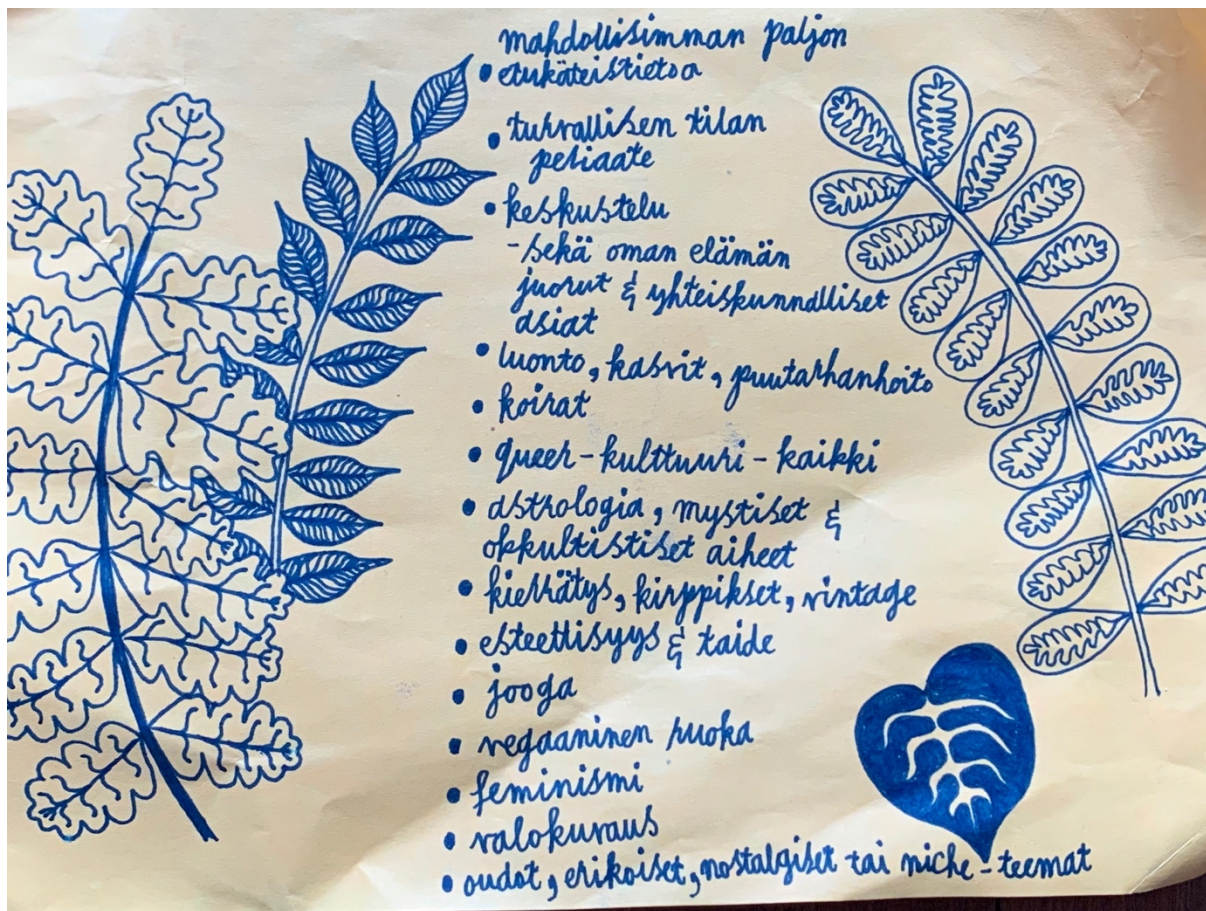 mahdollisimman paljon
• etukäteistietoa
• turvallisen tilan
periaate
• keskustelu
- sekä oman elämän
juorut & yhteiskunnalliset
asiat
• luonto, kasvit, puutarhanhoito
• koirat
• queer-kulttuuri-kaikki
• astrologia, mystiset &
okkultistiset aiheet
• kierrätys, kirppikset, vintage
• esteettisyys & taide
• jooga
• vegaaninen ruoka
• feminismi
• valokuvaus
• oudot, erikoiset, nostalgiset tai niche-teemat